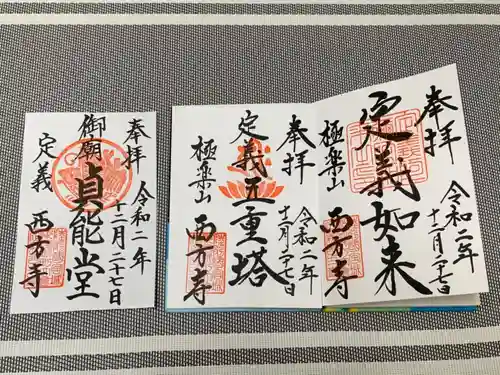 奉拝
定義如来
極楽山
西方寺
令和二年
十二月二十七日
奉拝
定義五重塔
極楽山
西方寺
令和二年
十二月二十七日
奉拝
御廟
貞能堂
定義
西方寺
令和二年
十二月二十七日